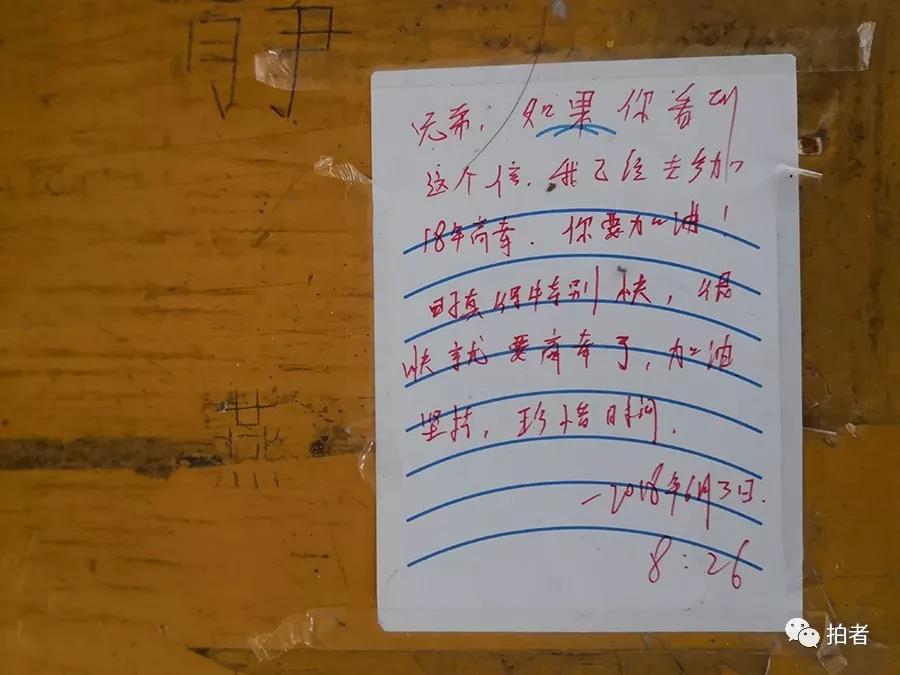 兄弟，如果你看到
这个信，我已经去参加
18年高考．你要加油！
时真得特别快，很
快就要高考了，加油
坚持，珍惜时间．
—2018年6月3日．
8：26
拍者